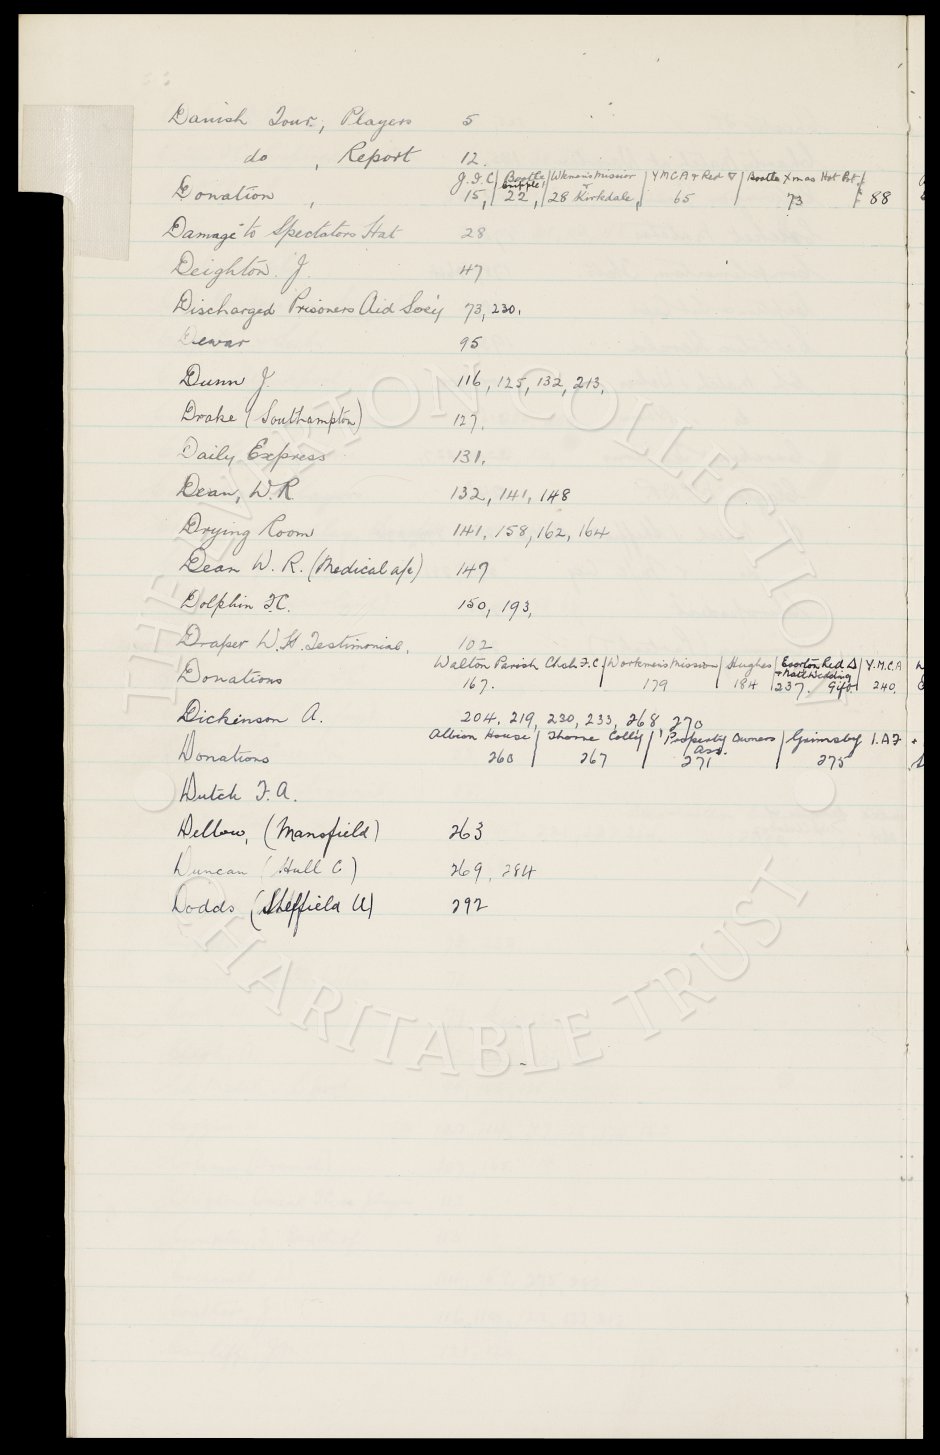 Danish Tour, Players 5
do , Report 12.
J.F.C | Bootle Cripple | Wkmens Mission + | Y M C A + Red ▽ | Bootle Xmas Hot Pot
Donation , 15, | 22, | 28 Kirkdale, | 65 | 73 | 88
Damage to Spectators Hat 28
Deighton. J. 47
Discharged Prisoners Aid Soc'y 73, 230.
Dewar 95
Dunn J. 116, 125, 132, 213,
Drake (Southampton) 127.
Daily Express 131.
Dean, W.R. 132, 141, 148
Drying Room 141, 158, 162, 164
Dean W. R. (Medical a/c) 147
Dolphin F.C. 150, 193,
Draper W.H. Testimonial. 102
Walton Parish Chch F.C. | Workmens Mission | Hughes | Everton Red △ + Matt Wedding | Y.M.C.A
Donations 167. | 179 | 184 | 237. Gift | 240.
Dickinson A. 204, 219, 230, 233, 268, 270
Albion House | Thorne Coll'y | Property Owners Ass. | Grimsby I.A.F
Donations 260 | 267 | 271 | 275
Dutch F.A.
Dellow, (Mansfield) 263
Duncan (Hull C) 269, 284
Dodds (Sheffield U) 292
THE EVERTON COLLECTION
CHARITABLE TRUST